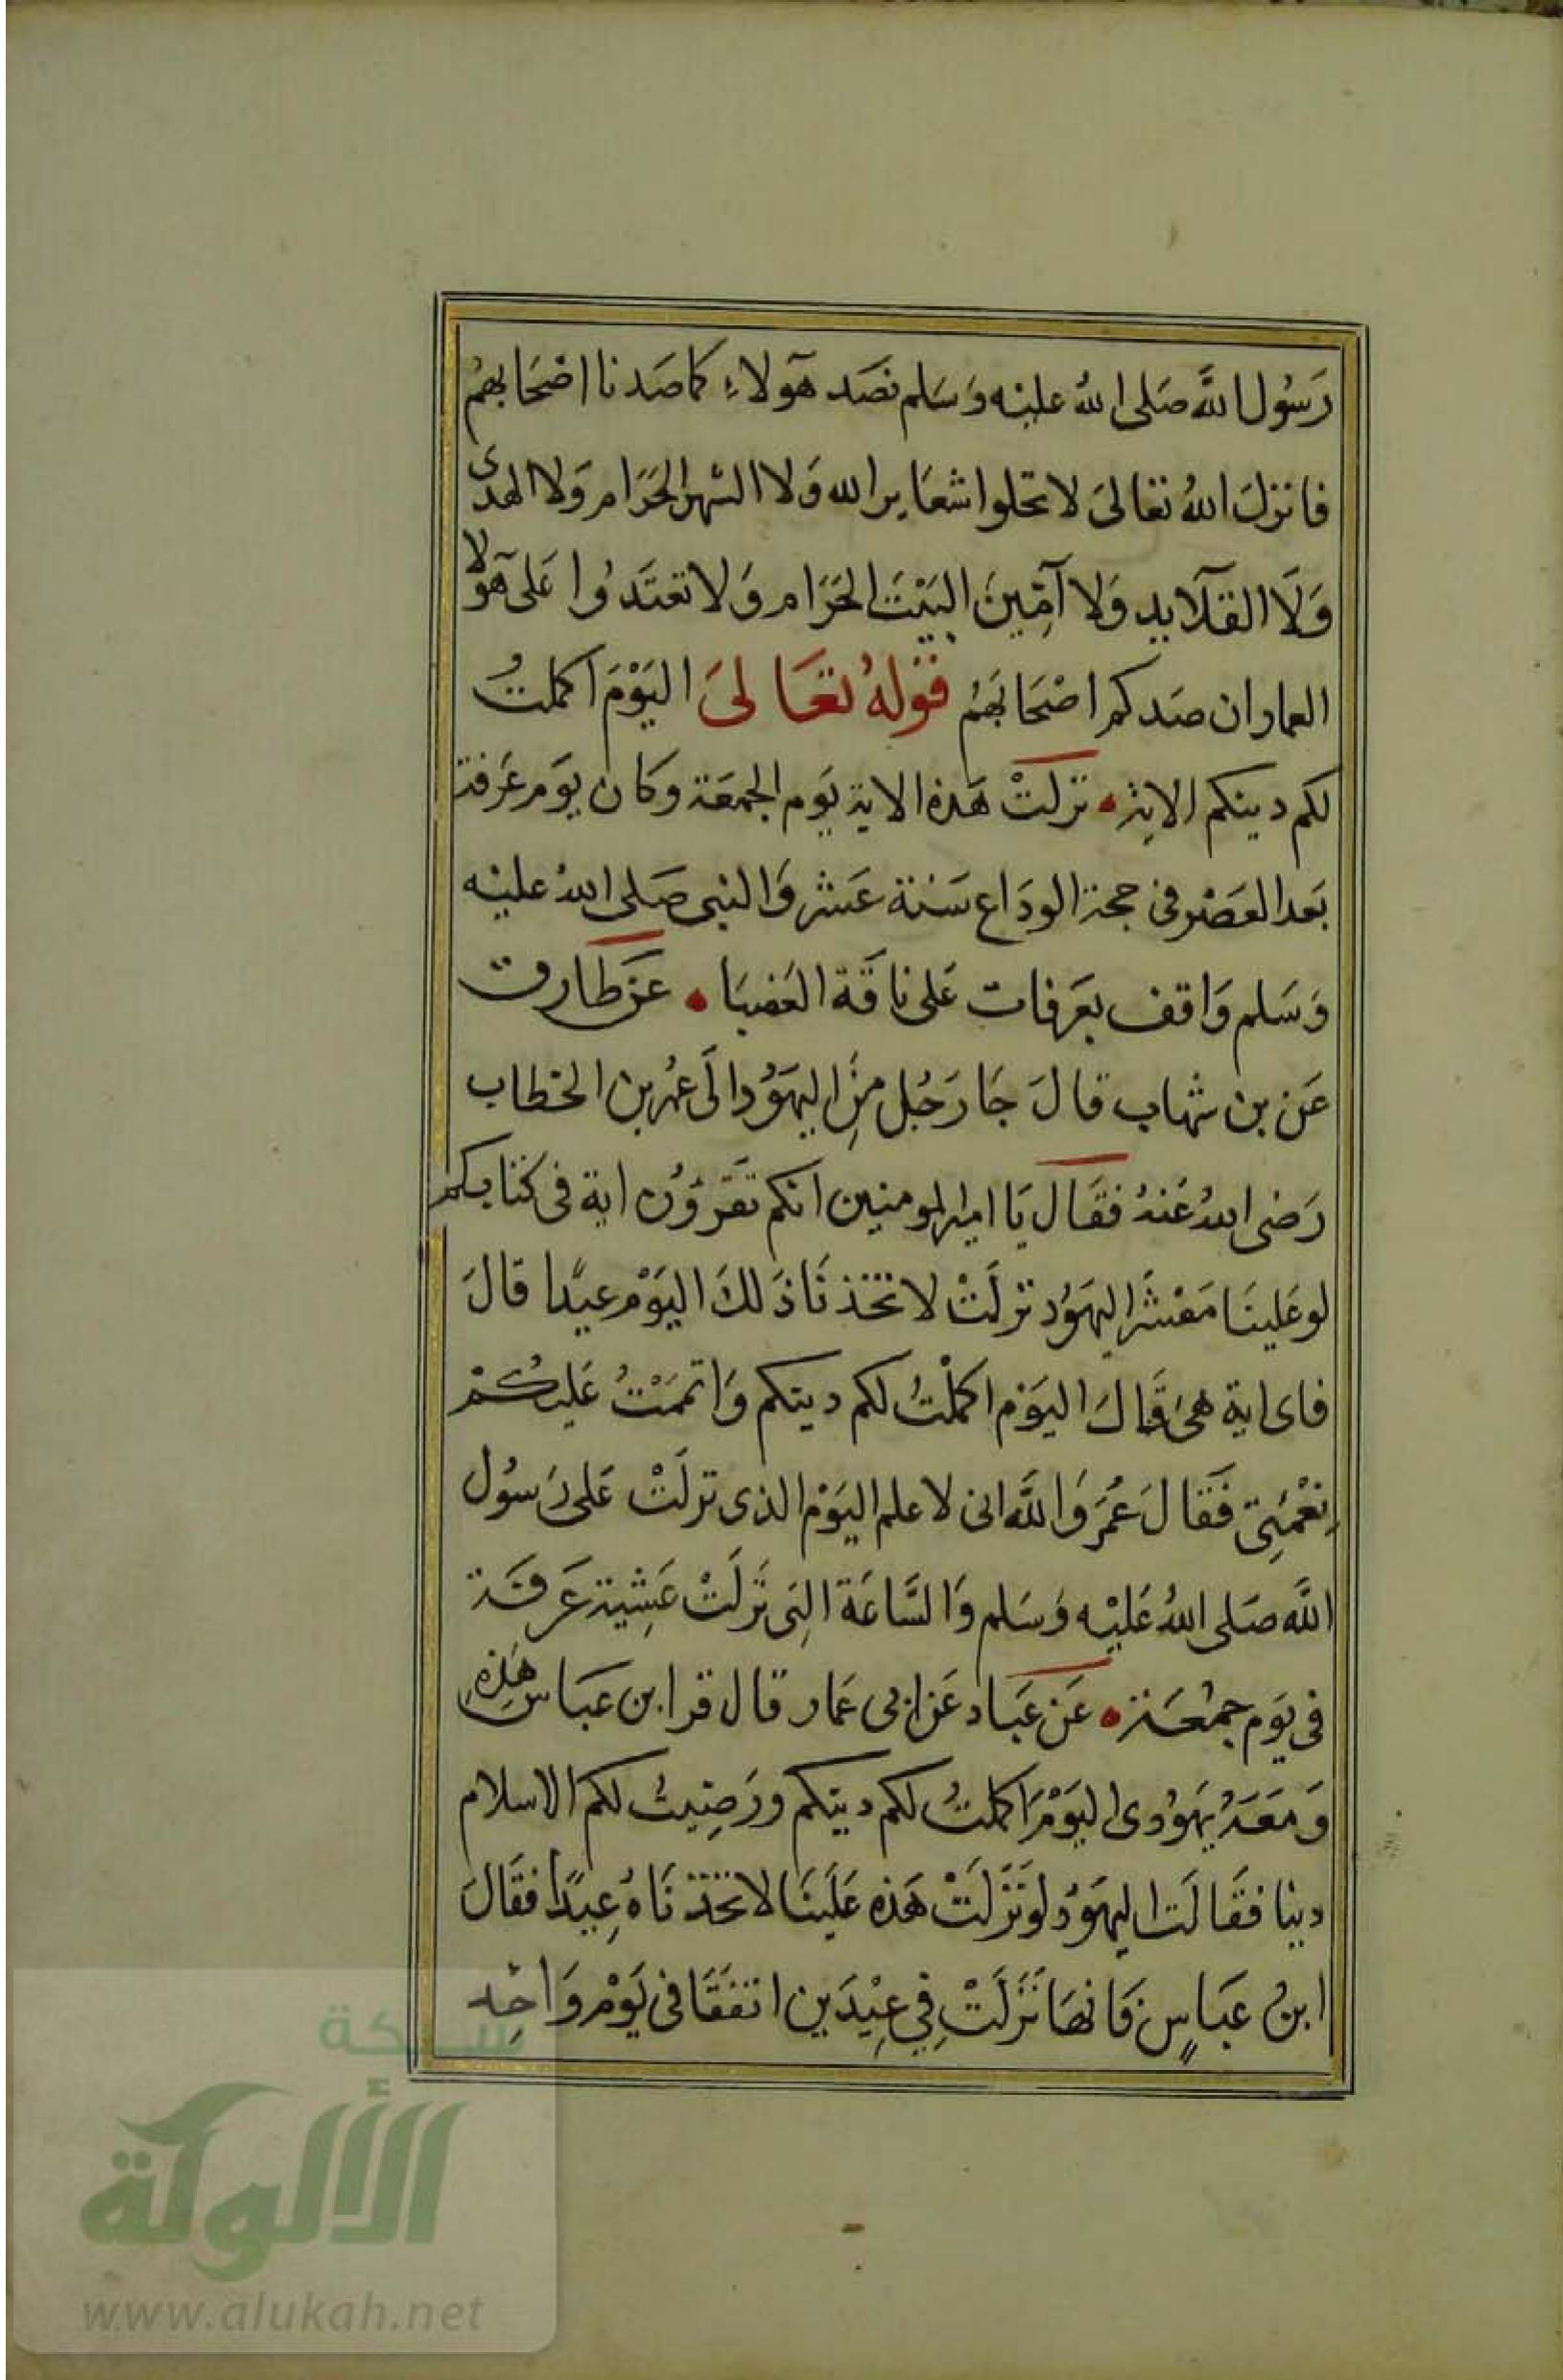 رَسُول اللَّه صَلى اللهُ علينه وَسَلم نصَد هَؤلاءِ كما صَدنا اصْحَابهمُ
فانزلَ اللهُ تعَالىَ لا تحلوا شعَاير الله وَلا الشهر الحَرَام وَلا الهدى
وَلَا القلَايد وَلا آمِّينَ البَيْتَ الحَرَام وَلا تعتَدُوا عَلى هَولا
العمار ان صَدكم اصْحَابَهُم قَولهُ تَعَالىَ اليَوْمَ اكملتُ
لكم دينكم الاية نزلَتْ هَذه الاية يَوم الجمعَة وَكان يوَم عَرفة
بَعد العَصْر في حجة الودَاع سَنة عَشر وَالنبي صَلى اللهُ عليْه
وَسَلم وَاقف بعَرفات عَلى ناقَة العَضبَا عَن طَارق
عَن بن شهاب قالَ جَا رَجُل مِنَ اليَهوُد الَى عُمر بن الخطاب
رَضى اللهُ عَنهُ فقَال يَا امير المومنين انكم تقَرؤُن اية فى كتابكم
لو عَلينَا مَعْشَر اليهَوُد نزلَتْ لاتخذنَا ذَلكَ اليَوْم عيدًا قالَ
فاى اية هىَ قَالَ اليَوَم اكمَلْتُ لكم دينكم وَاتممَتُ عَليكُمْ
نِعْمَتِى فَقَالَ عُمَرَ وَاللَّه انى لاعلم اليَوْم الذى نزلَتْ عَلى رَسُول
اللَّه صَلى اللهُ عَليْه وَسَلم وَالسَّاعَة التِى نَزلَتْ عَشِية عَرفَة
فى يَوَم جمُعَة عَن عَباد عَن ابى عَمار قال قرا ابن عَبَاس هَذِهِ
وَمعَهُ يَهوُدى اليَوْمَ اكملتُ لكم دينكم ورَضِيتُ لكم الاسلام
دينا فقَالَت اليهَوُد لو نَزَلَتْ هَذه عَلَينَا لاتخذنَاهُ عِيدًا فقَالَ
ابنُ عَبَاسٍ فَانهَا نَزَلَتْ فِي عِيْدَين اتفَقَا فى يَوْم وَاحِد
شبكة
الألوكة
www.alukah.net